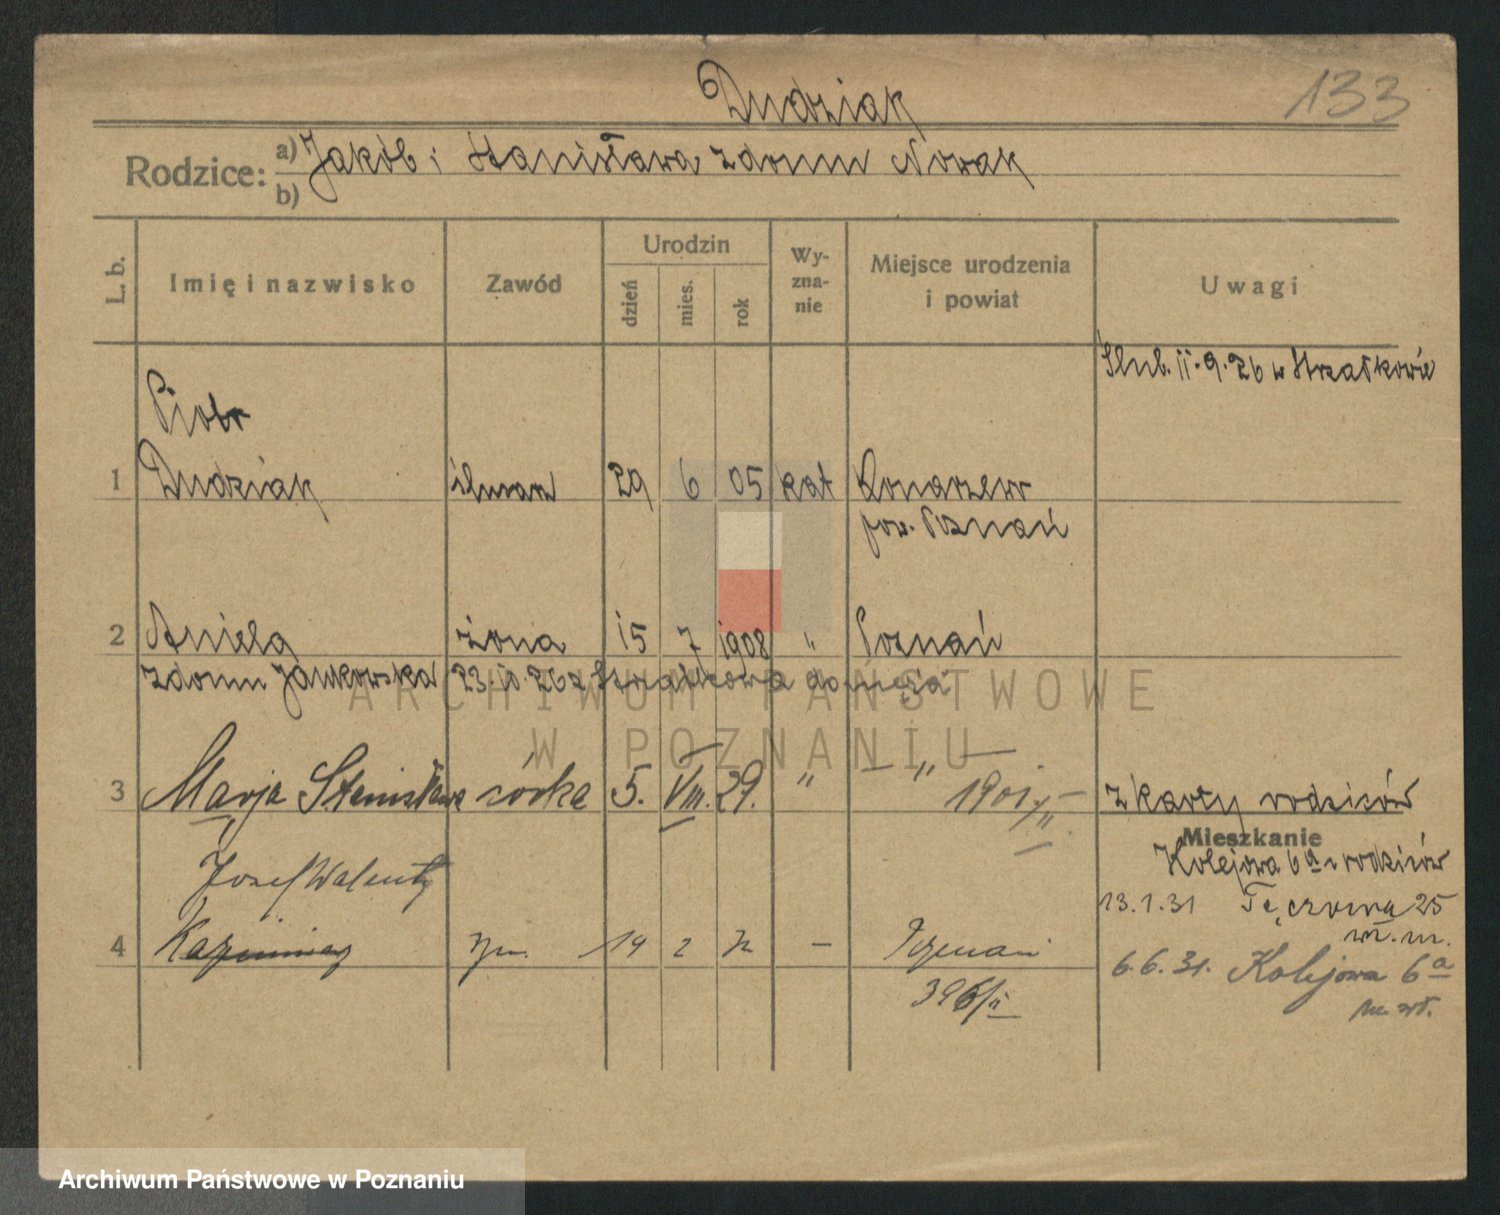 133
Dudziak
Rodzice: a) Jakób i Stanisława zdomu Nowak
b)
L. b. Imię i nazwisko Zawód Urodzin dzień mies. rok Wy-zna-nie Miejsce urodzenia i powiat Uwagi
Ślub. 11.9.26 w Strzałkowie
Piotr
1 Dudziak ślusarz 29 6 05 kat Konarzewo
pow. Poznań
2 Aniela żona 15 7 1908 " Poznań
zdomu Jankowska 23.10.26 z Strzałkowa do męża
3 Marja Stanisława córka 5. VIII. 29. " — " —
1901/II z karty rodziców
Mieszkanie
Kolejowa 6a u rodziców
Józef Walenty
13.1.31 Tęczowa 25
wł. m.
4 Kazimierz syn 14 2 Poznań
6.6.31. Kolejowa 6a
396/II
m. wł.
ARCHIWUM PAŃSTWOWE
W POZNANIU
Archiwum Państwowe w Poznaniu